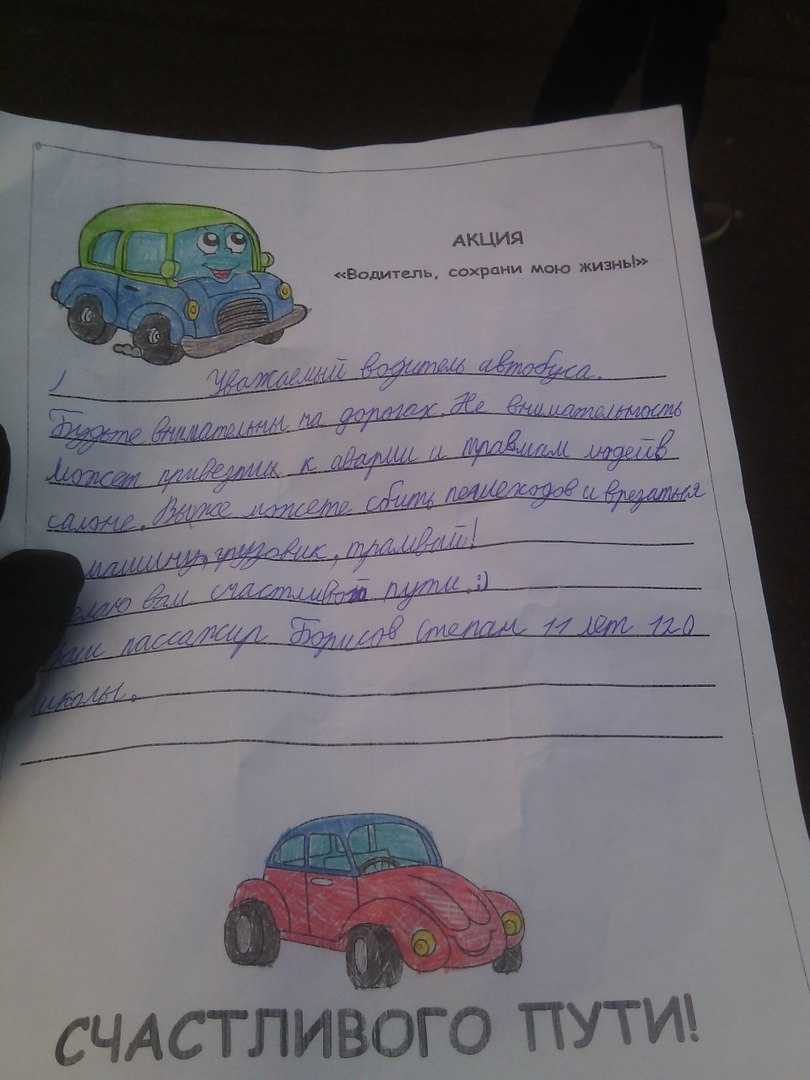 АКЦИЯ
«Водитель, сохрани мою жизнь!»
Уважаемый водитель автобуса.
Будьте внимательны на дорогах. Не внимательность
может привезти к аварии и травмам людей в
салоне. Вы же можете сбить пешеходов и врезаться
машину, грузовик, трамвай!
елаю вам счастливой пути. :)
аш пассажир Борисов Степан 11 лет 120
школы.
СЧАСТЛИВОГО ПУТИ!